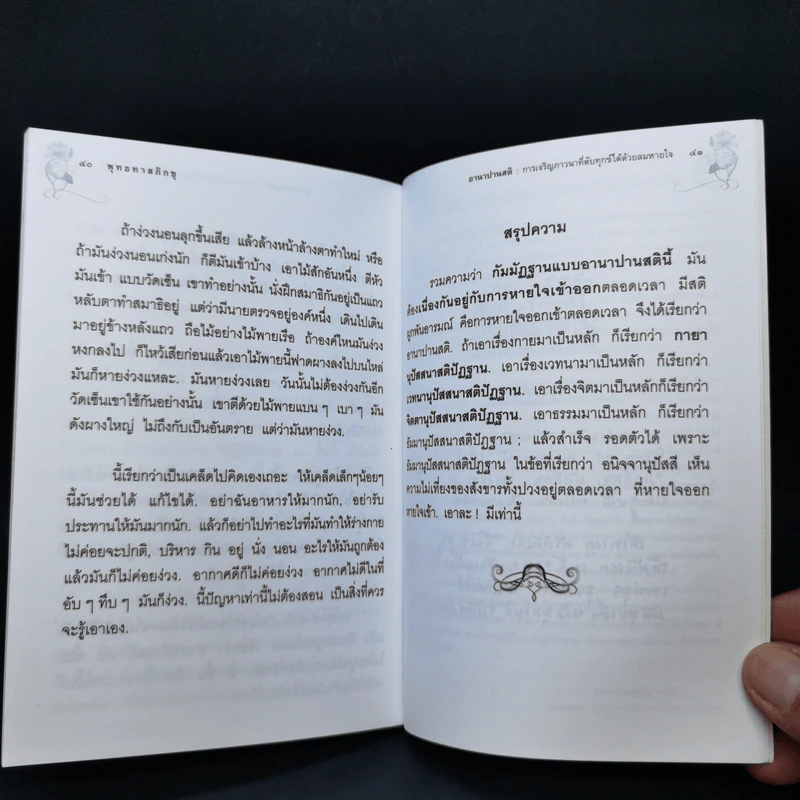 ๔๐ พุทธทาสภิกขุ
ถ้าง่วงนอนลุกขึ้นเสีย แล้วล้างหน้าล้างตาทำใหม่ หรือ
ถ้ามันง่วงนอนเก่งนัก ก็ตีมันเข้าบ้าง เอาไม้สักอันหนึ่ง ตีหัว
มันเข้า แบบวัดเซ็น เขาทำอย่างนั้น นั่งฝึกสมาธิกันอยู่เป็นแถว
หลับตาทำสมาธิอยู่ แต่ว่ามีนายตรวจอยู่องค์หนึ่ง เดินไปเดิน
มาอยู่ข้างหลังแถว ถือไม้อย่างไม้พายเรือ ถ้าองค์ไหนมันง่วง
หงกลงไป ก็ไหว้เสียก่อนแล้วเอาไม้พายนี้ฟาดผางลงไปบนไหล่
มันก็หายง่วงแหละ มันหายง่วงเลย วันนั้นไม่ต้องง่วงกันอีก
วัดเซ็นเขาใช้กันอย่างนั้น เขาตีด้วยไม้พายแบน ๆ เบา ๆ มัน
ดังผางใหญ่ ไม่ถึงกับเป็นอันตราย แต่ว่ามันหายง่วง.
นี้เรียกว่าเป็นเคล็ดไปคิดเองเถอะ ให้เคล็ดเล็กๆน้อยๆ
นี้มันช่วยได้ แก้ไขได้. อย่าฉันอาหารให้มากนัก, อย่ารับ
ประทานให้มันมากนัก. แล้วก็อย่าไปทำอะไรที่มันทำให้ร่างกาย
ไม่ค่อยจะปกติ, บริหาร กิน อยู่ นั่ง นอน อะไรให้มันถูกต้อง
แล้วมันก็ไม่ค่อยง่วง. อากาศดีก็ไม่ค่อยง่วง อากาศไม่ดีในที่
อับ ๆ ทึบ ๆ มันก็ง่วง. นี้ปัญหาเท่านี้ไม่ต้องสอน เป็นสิ่งที่ควร
จะรู้เอาเอง.
อานาปานสติ : การเจริญภาวนาที่ดับทุกข์ได้ด้วยลมหายใจ ๔๑
สรุปความ
รวมความว่า กัมมัฏฐานแบบอานาปานสตินี้ มัน
ต้องเนื่องกันอยู่กับการหายใจเข้าออกตลอดเวลา มีสติ
ผูกพันอารมณ์ คือการหายใจออกเข้าตลอดเวลา จึงได้เรียกว่า
อานาปานสติ. ถ้าเอาเรื่องกายมาเป็นหลัก ก็เรียกว่า กายา
นุปัสสนาสติปัฏฐาน. เอาเรื่องเวทนามาเป็นหลัก ก็เรียกว่า
เวทนานุปัสสนาสติปัฏฐาน. เอาเรื่องจิตมาเป็นหลักก็เรียกว่า
จิตตานุปัสสนาสติปัฏฐาน. เอาธรรมมาเป็นหลัก ก็เรียกว่า
ธัมมานุปัสสนาสติปัฏฐาน ; แล้วสำเร็จ รอดตัวได้ เพราะ
ธัมมานุปัสสนาสติปัฏฐาน ในข้อที่เรียกว่า อนิจจานุปัสสี เห็น
ความไม่เที่ยงของสังขารทั้งปวงอยู่ตลอดเวลา ที่หายใจออก
หายใจเข้า. เอาละ ! มีเท่านี้